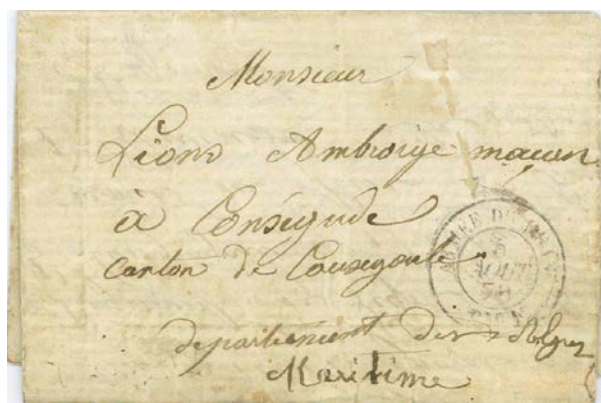 Monsieur
Lions Ambroise maçon
à Conségude
Canton de Cousegoule
departement des Alpes
Maritime
ARMEE DU RHIN
AOUT